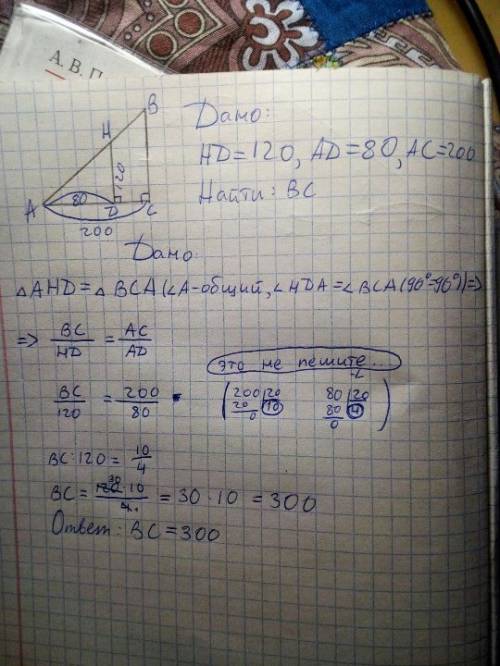 А. В. П
B
H
120
A
80
D
C
200
Дано:
HD=120, AD=80, AC=200
Найти: BC
Дано
△AHD=△BCA(∠A-общий, ∠HDA=∠BCA(90°=90°)=>
=> BC/HD = AC/AD
это не пешите...
BC/120 = 200/80
(200|20 80|20
20 |10 80|4
0 0)
BC:120= 10/4
BC= 120 30·10/4 = 30·10 =300
Ответ: BC=300